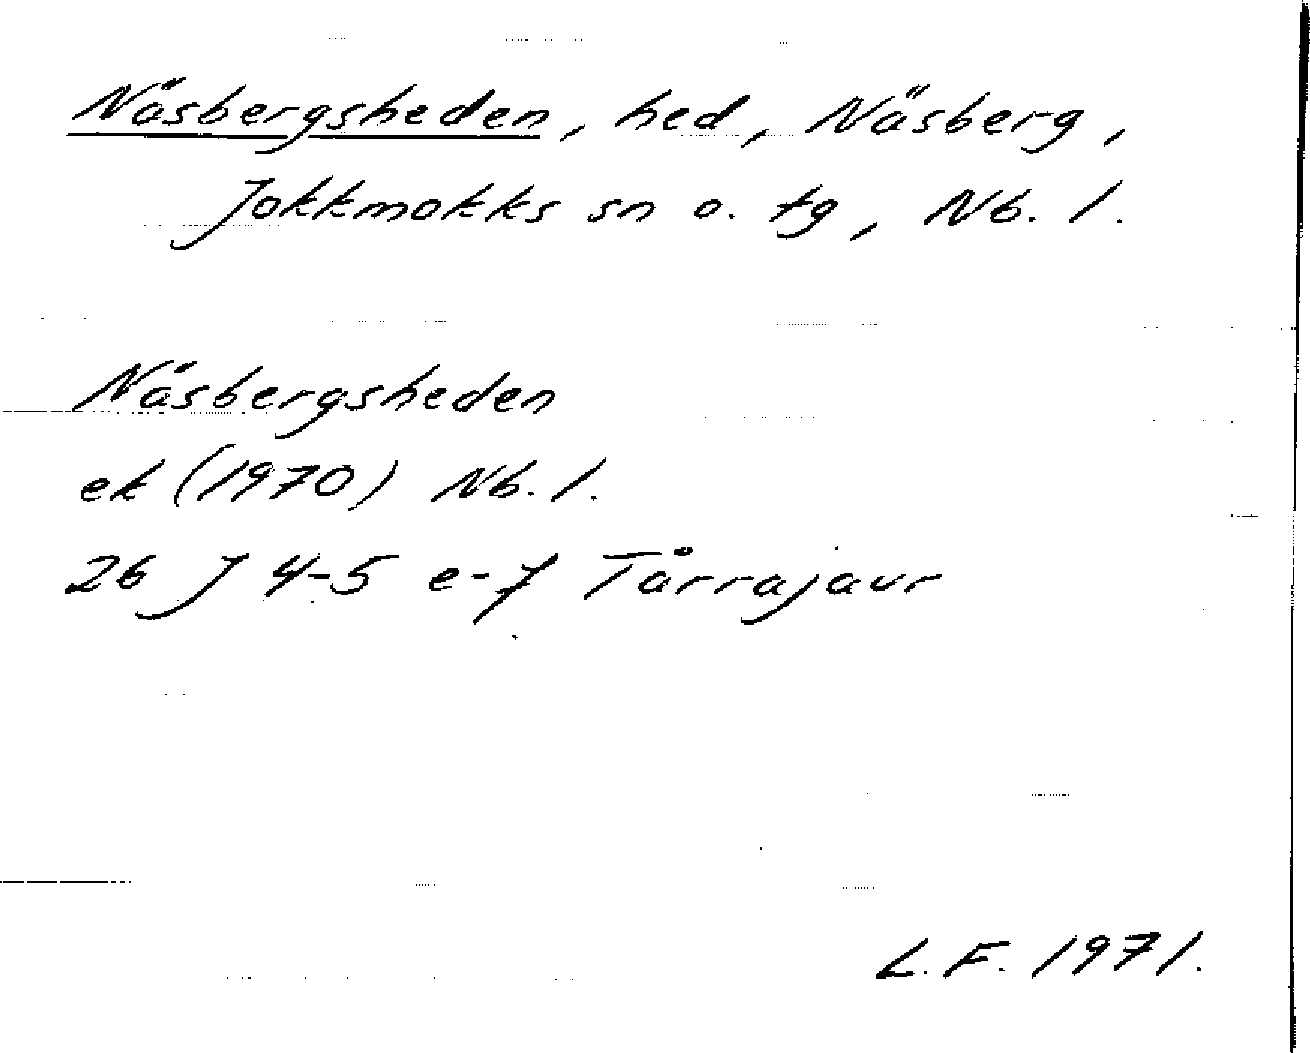 Näsbergsheden, hed, Näsberg,
Jokkmokks sn o. tg, Nb. l.
Näsbergsheden
ek (1970) Nb. l.
26 J 4-5 e-f Tårrajaur
L. F. 1971.